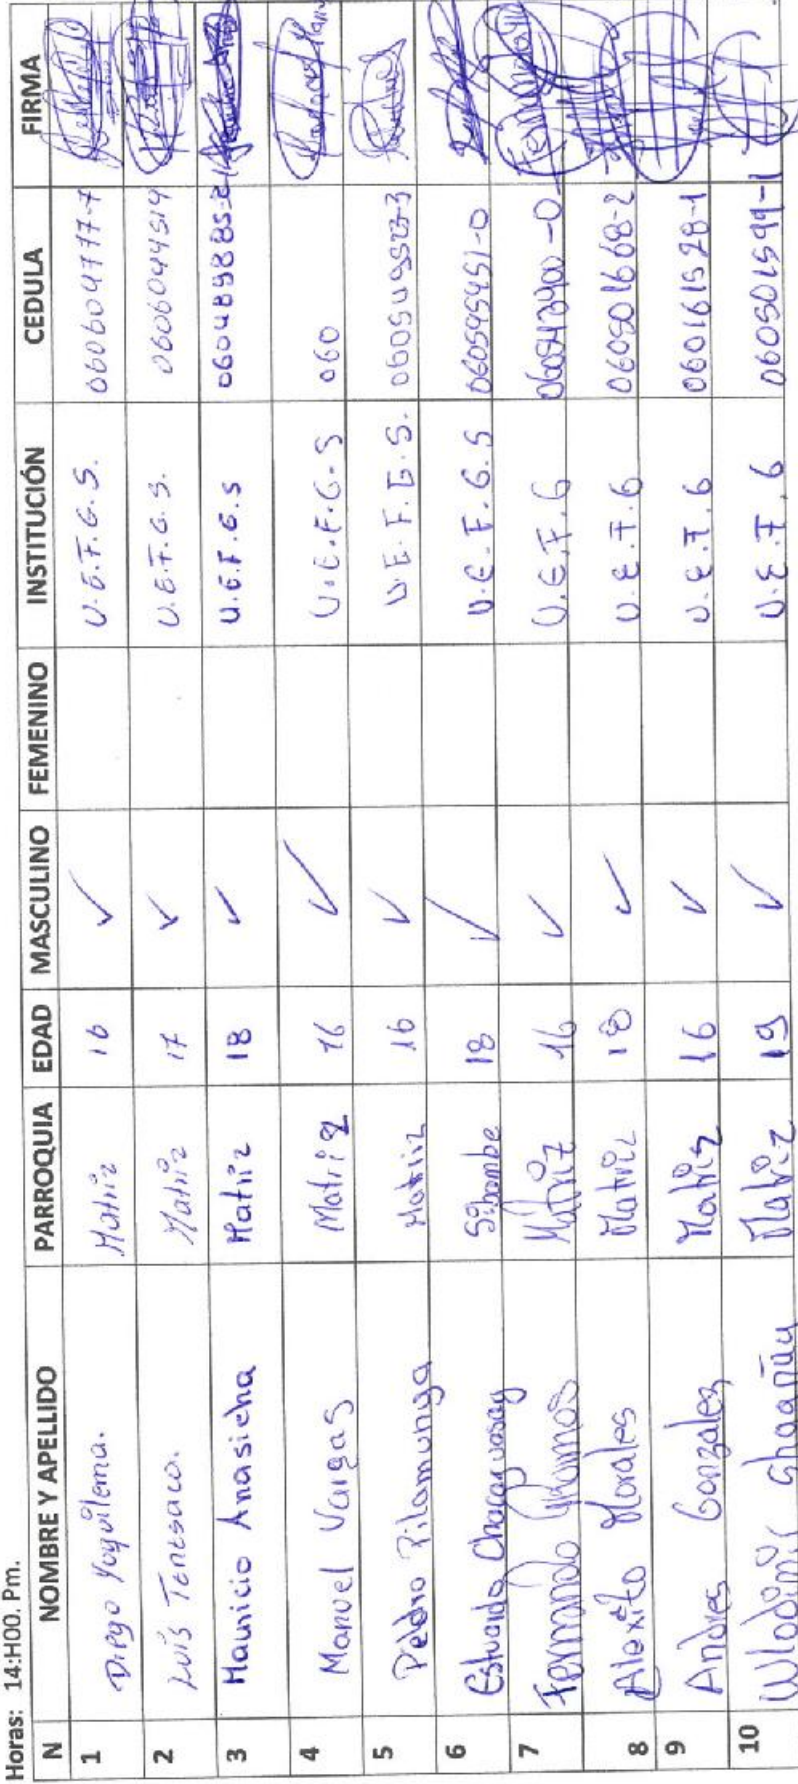 Horas: 14:H00. Pm.
N NOMBRE Y APELLIDO PARROQUIA EDAD MASCULINO FEMENINO INSTITUCIÓN CEDULA FIRMA
1 Diego Yuquilema. Matriz 16 ✓ U.E.F.G.S. 060604777-7
2 Luis Tenesaco. Matriz 17 ✓ U.E.F.G.S. 0606044519
3 Mauricio Anasicha Matriz 18 ✓ U.E.F.G.S 060489885-2
4 Manuel Vargas Matriz 16 ✓ U.E.F.G-S 060
5 Pedro Pilamunga Matriz 16 ✓ U.E.F.G.S. 060
6 Estuardo Sibambe 18 ✓ U.E.F.G.S 060595951-0
7 Fernando Ramos Matriz 16 ✓ U.E.F.G
8 Alexito Morales Matriz 18 ✓ U.E.F.G 060501668-2
9 Andres Gonzalez Matriz 16 ✓ U.E.F.G 060161528-1
10 Wladimir Matriz 19 ✓ U.E.F.G 060501599-1